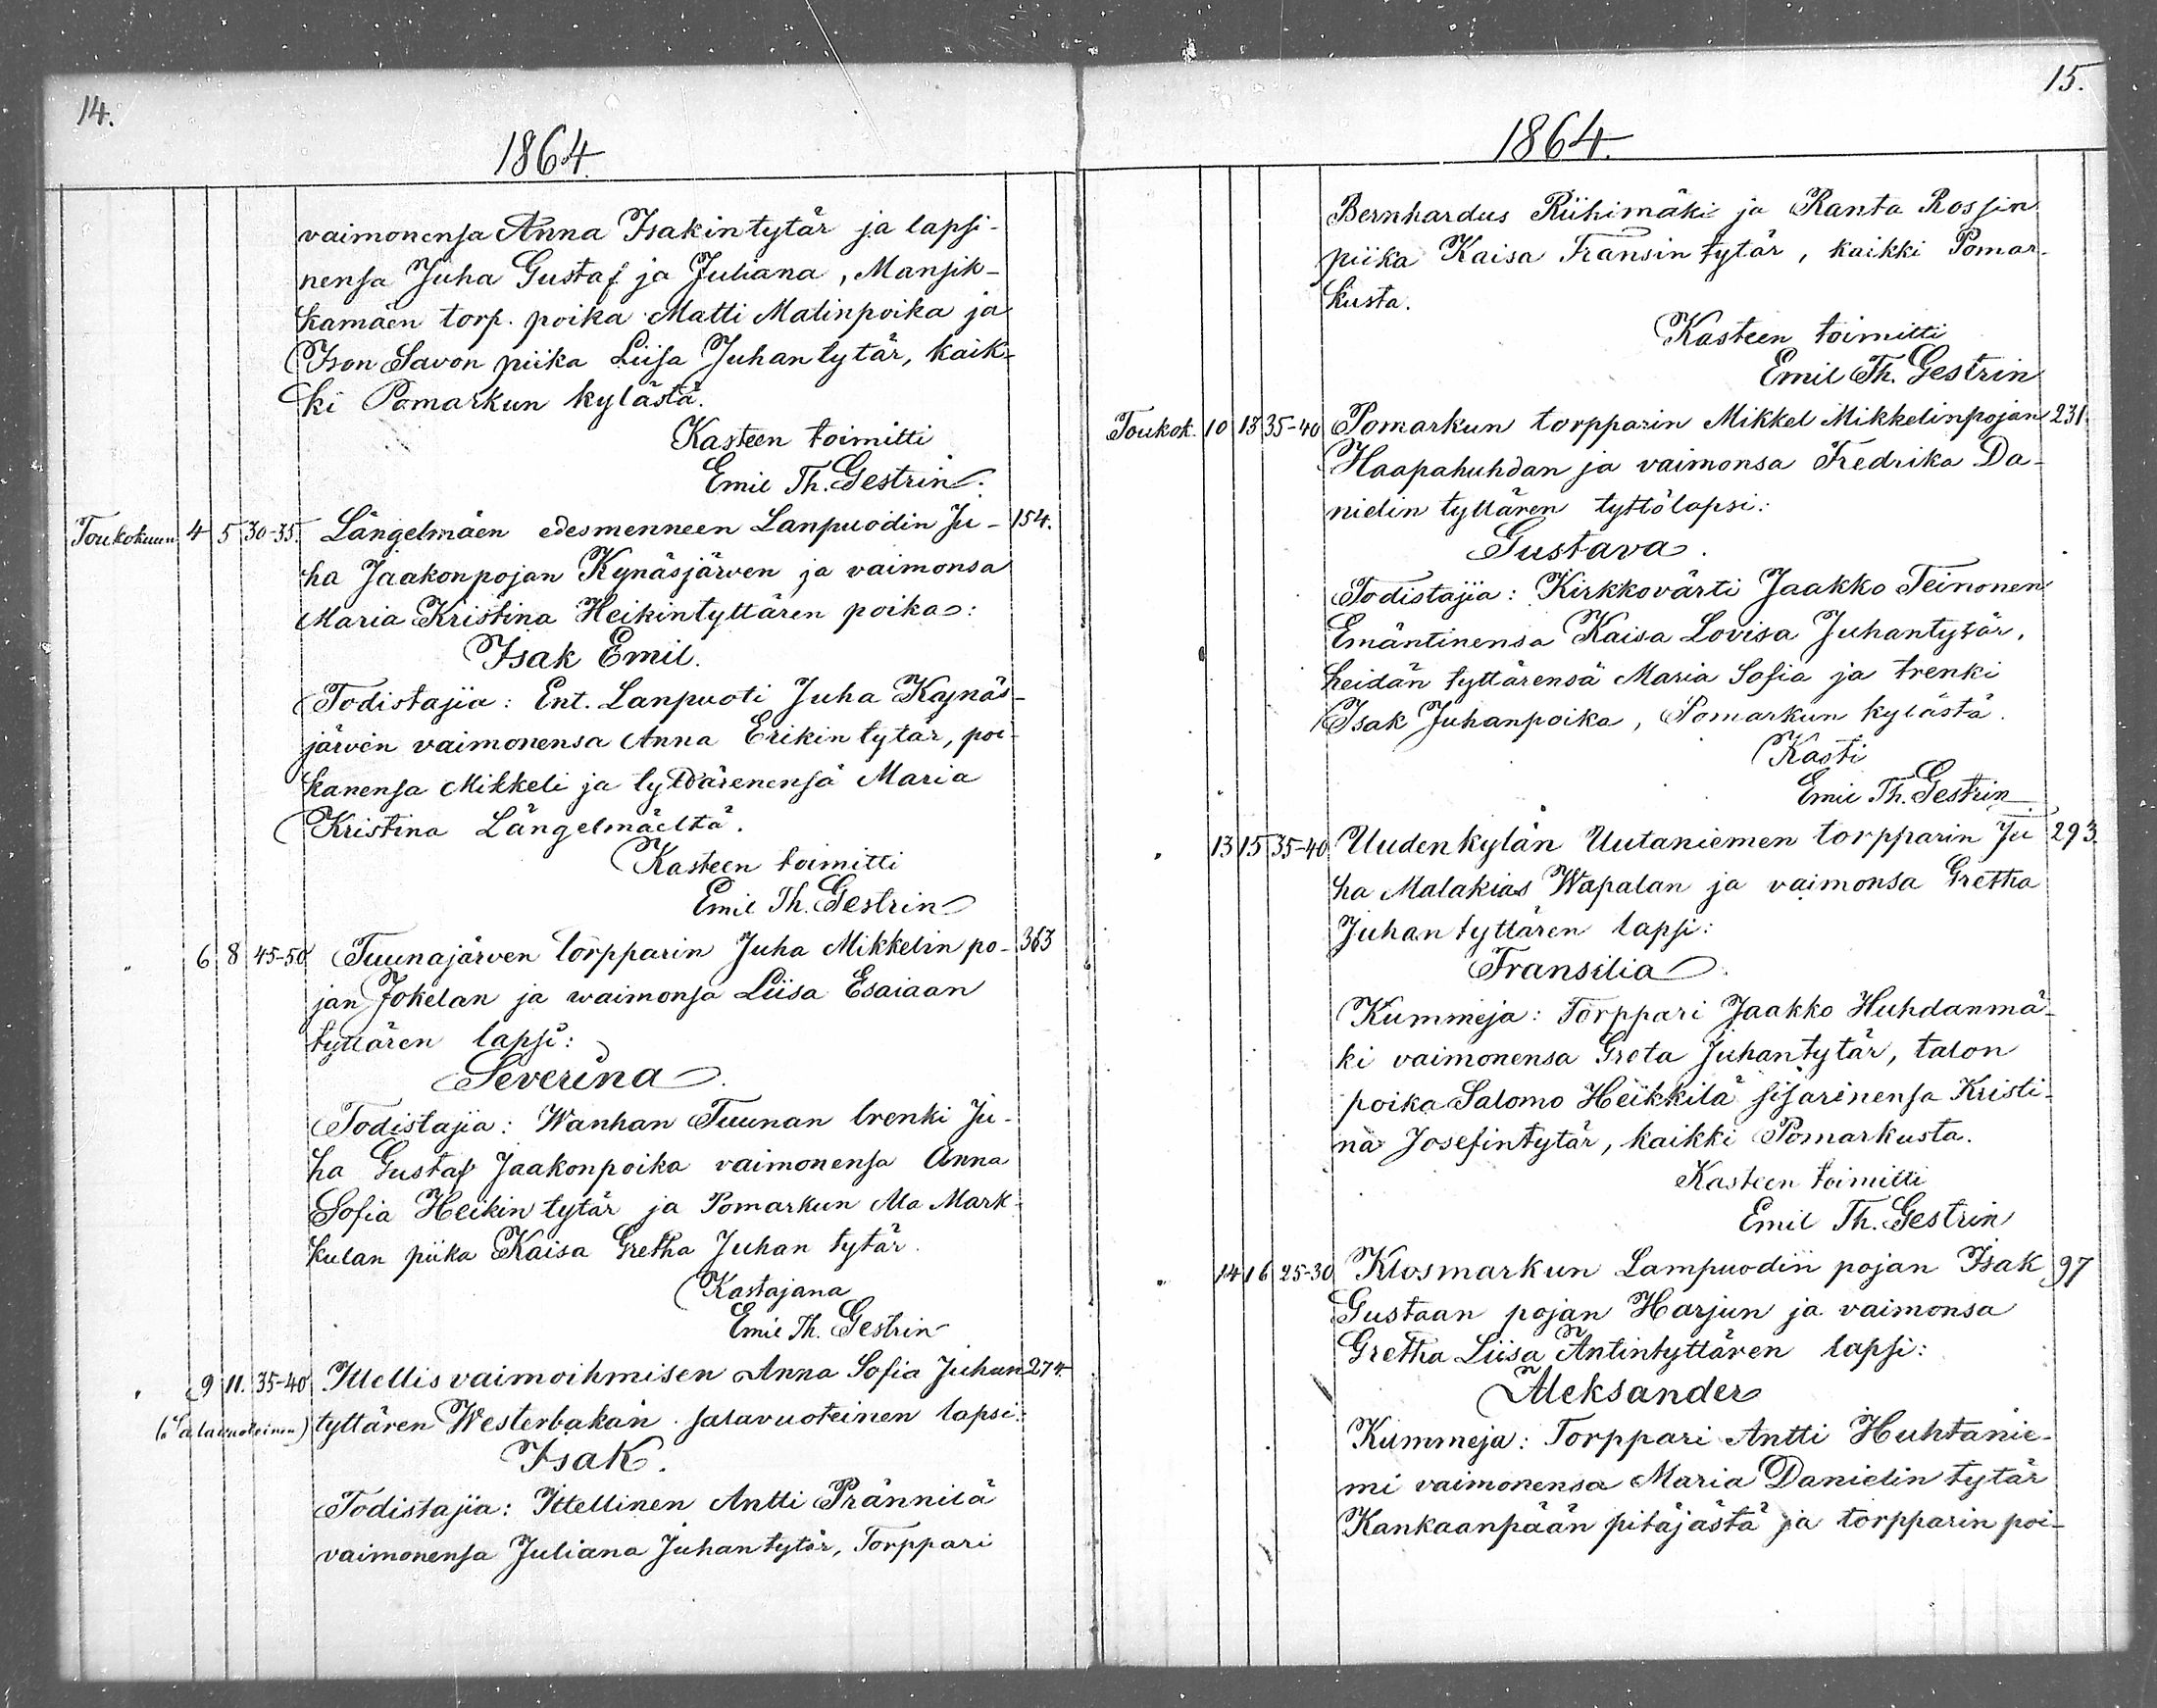 14.
1864.
vaimonensa Anna Isakintytär ja lapsi-
nensa Juha Gustaf ja Juliana, Mansik-
kamäen torp. poika Matti Matinpoika ja
Ison Savon piika Liisa Juhantytär, kaik-
ki Pomarkun kylästä.
Kasteen toimitti
Emil Th. Gestrin.
Toukokuun 4 5 30-35. Längelmäen edesmenneen Lanpuodin Ju- 154.
ha Jaakonpojan Kynäsjärven ja vaimonsa
Maria Kristina Heikintyttären poika:
Isak Emil.
Todistajia: Ent. Lanpuoti Juha Kynäs-
järven vaimonensa Anna Erikin tytär, poi-
kanensa Mikkeli ja tyttärenensä Maria
Kristina Längelmäeltä.
Kasteen toimitti
Emil Th. Gestrin
" 6 8 45-50 Tuunajärven torpparin Juha Mikkelin po- 363
jan Jokelan ja waimonsa Liisa Esaiaan
tyttären lapsi:
Severina.
Todistajia: Wanhan Tuunan trenki Ju-
ha Gustaf Jaakonpoika vaimonensa Anna
Sofia Heikin tytär ja Pomarkun Ala Mark-
kulan piika Kaisa Gretha Juhan tytär.
Kastajana
Emil Th. Gestrin
" 9 11. 35-40 Itellis vaimoihmisen Anna Sofia Juhan 274.
(Salavuoteinen) tyttären Westerbakan salavuoteinen lapsi:
Isak.
Todistajia: Ittellinen Antti Prännilä
vaimonensa Juliana Juhantytär, Torppari
15.
1864.
Bernhardus Riihimäki ja Ranta Rossin
piika Kaisa Fransin tytär, kaikki Pomar-
kusta.
Kasteen toimitti
Emil Th. Gestrin
Toukok. 10 13 35-40 Pomarkun torpparin Mikkel Mikkelinpojan 231.
Haapahuhdan ja vaimonsa Fredrika Da-
nielin tyttären tyttölapsi:
Gustava.
Todistajia: Kirkkovärti Jaakko Teinonen
Emäntinensa Kaisa Lovisa Juhantytär,
heidän tyttärensä Maria Sofia ja trenki
Isak Juhanpoika, Pomarkun kylästä.
Kasti
Emil Th. Gestrin
" 13 15 35-40 Uudenkylän Uutaniemen torpparin Ju 293.
ha Malakias Wapalan ja vaimonsa Gretha
Juhan tyttären lapsi:
Fransilia.
Kummeja: Torppari Jaakko Huhdanmä-
ki vaimonensa Greta Juhantytär, talon
poika Salomo Heikkilä sisarinensa Kristi-
na Josefintytär, kaikki Pomarkusta.
Kasteen toimitti
Emil Th. Gestrin
" 14 16 25-30 Klosmarkun Lampuodin pojan Isak 97
Gustaan pojan Harjun ja vaimonsa
Gretha Liisa Antintyttären lapsi:
Aleksander
Kummeja: Torppari Antti Huhtanie-
mi vaimonensa Maria Danielin tytär
Kankaanpään pitäjästä ja torpparin poi-